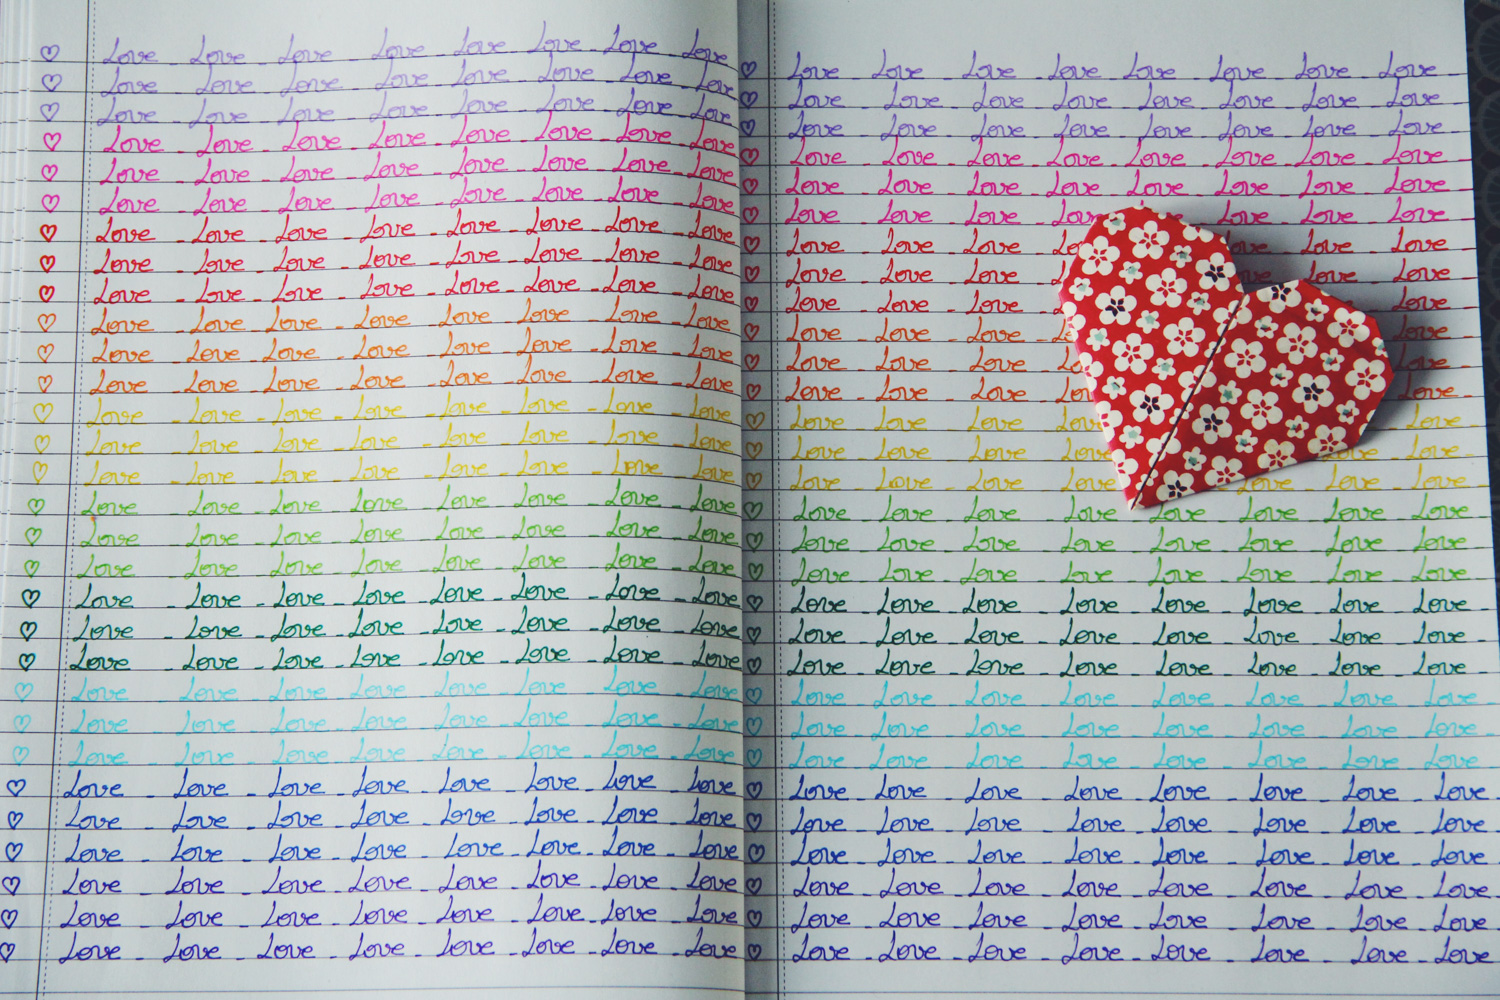 ♡ Love - Love - Love - Love - Love - Love - Love - Love
♡ Love - Love - Love - Love - Love - Love - Love - Love
♡ Love - Love - Love - Love - Love - Love - Love - Love
♡ Love - Love - Love - Love - Love - Love - Love - Love
♡ Love - Love - Love - Love - Love - Love - Love - Love
♡ Love - Love - Love - Love - Love - Love - Love - Love
♡ Love - Love - Love - Love - Love - Love - Love - Love
♡ Love - Love - Love - Love - Love - Love - Love - Love
♡ Love - Love - Love - Love - Love - Love - Love - Love
♡ Love - Love - Love - Love - Love - Love - Love - Love
♡ Love - Love - Love - Love - Love - Love - Love - Love
♡ Love - Love - Love - Love - Love - Love - Love - Love
♡ Love - Love - Love - Love - Love - Love - Love - Love
♡ Love - Love - Love - Love - Love - Love - Love - Love
♡ Love - Love - Love - Love - Love - Love - Love - Love
♡ Love - Love - Love - Love - Love - Love - Love - Love
♡ Love - Love - Love - Love - Love - Love - Love - Love
♡ Love - Love - Love - Love - Love - Love - Love - Love
♡ Love - Love - Love - Love - Love - Love - Love - Love
♡ Love - Love - Love - Love - Love - Love - Love - Love
♡ Love - Love - Love - Love - Love - Love - Love - Love
♡ Love - Love - Love - Love - Love - Love - Love - Love
♡ Love - Love - Love - Love - Love - Love - Love - Love
♡ Love - Love - Love - Love - Love - Love - Love - Love
♡ Love - Love - Love - Love - Love - Love - Love - Love
♡ Love - Love - Love - Love - Love - Love - Love - Love
♡ Love - Love - Love - Love - Love - Love - Love - Love
♡ Love - Love - Love - Love - Love - Love - Love - Love
♡ Love - Love - Love - Love - Love - Love - Love - Love
♡ Love - Love - Love - Love - Love - Love - Love - Love
♡ Love - Love - Love - Love - Love - Love - Love - Love -
♡ Love - Love - Love - Love - Love - Love - Love - Love -
♡ Love - Love - Love - Love - Love - Love - Love - Love -
♡ Love - Love - Love - Love - Love - Love - Love - Love -
♡ Love - Love - Love - Love - Love - Love - Love - Love -
♡ Love - Love - Love - Love - Love - Love -
♡ Love - Love - Love - Love - Love -
♡ Love - Love - Love - Love - Love -
♡ Love - Love - Love - Love -
♡ Love - Love - Love - Love -
♡ Love - Love - Love - Love -
♡ Love - Love - Love - Love -
♡ Love - Love - Love - Love -
♡ Love - Love - Love - Love -
♡ Love - Love - Love - Love - Love - Love - Love -
♡ Love - Love - Love - Love - Love - Love - Love - Love -
♡ Love - Love - Love - Love - Love - Love - Love - Love -
♡ Love - Love - Love - Love - Love - Love - Love - Love -
♡ Love - Love - Love - Love - Love - Love - Love - Love -
♡ Love - Love - Love - Love - Love - Love - Love - Love -
♡ Love - Love - Love - Love - Love - Love - Love - Love -
♡ Love - Love - Love - Love - Love - Love - Love - Love -
♡ Love - Love - Love - Love - Love - Love - Love - Love -
♡ Love - Love - Love - Love - Love - Love - Love - Love -
♡ Love - Love - Love - Love - Love - Love - Love - Love -
♡ Love - Love - Love - Love - Love - Love - Love - Love -
♡ Love - Love - Love - Love - Love - Love - Love - Love -
♡ Love - Love - Love - Love - Love - Love - Love - Love -
♡ Love - Love - Love - Love - Love - Love - Love - Love -
♡ Love - Love - Love - Love - Love - Love - Love - Love -